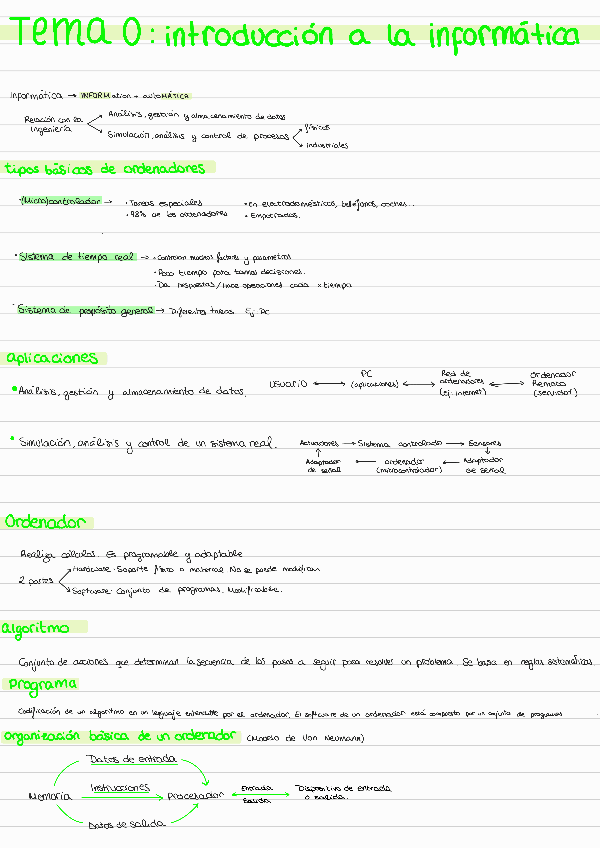 TEMA 0: introducción a la informática
Informática → INFORMation + autoMÁTICA
Relación con la ingeniería
Análisis, gestión y almacenamiento de datos
Simulación, análisis y control de procesos
físicos
industriales
tipos básicos de ordenadores
·(Micro)controlador →
· Tareas especiales
· 98% de los ordenadores
· En electrodomésticos, teléfonos, coches...
· Empotrados.
· Sistema de tiempo real →
· Controlan muchos factores y parámetros
· Poco tiempo para tomar decisiones.
· Da respuestas/hace operaciones cada x tiempo
· Sistema de propósito general → Diferentes tareas. Ej: PC
aplicaciones
• Análisis, gestión y almacenamiento de datos.
USUARIO ↔ PC (aplicaciones) ↔ Red de ordenadores (ej: internet) ↔ Ordenador Remoto (servidor)
• Simulación, análisis y control de un sistema real.
Actuadores → Sistema controlado → Sensores
Adaptador de señal ← ordenador (microcontrolador) ← Adaptador de señal
Ordenador
Realiza cálculos. Es programable y adaptable
2 partes
Hardware: Soporte físico o material. No se puede modificar.
Software: Conjunto de programas. Modificable.
algoritmo
Conjunto de acciones que determinan la secuencia de los pasos a seguir para resolver un problema. Se basa en reglas sistemáticas
Programa
Codificación de un algoritmo en un lenguaje entendible por el ordenador. El software de un ordenador está compuesto por un conjunto de programas
organización básica de un ordenador (Modelo de Von Neumann)
Datos de entrada
Memoria
Instrucciones
Procesador
Entrada
Salida
Dispositivo de entrada o salida.
Datos de salida